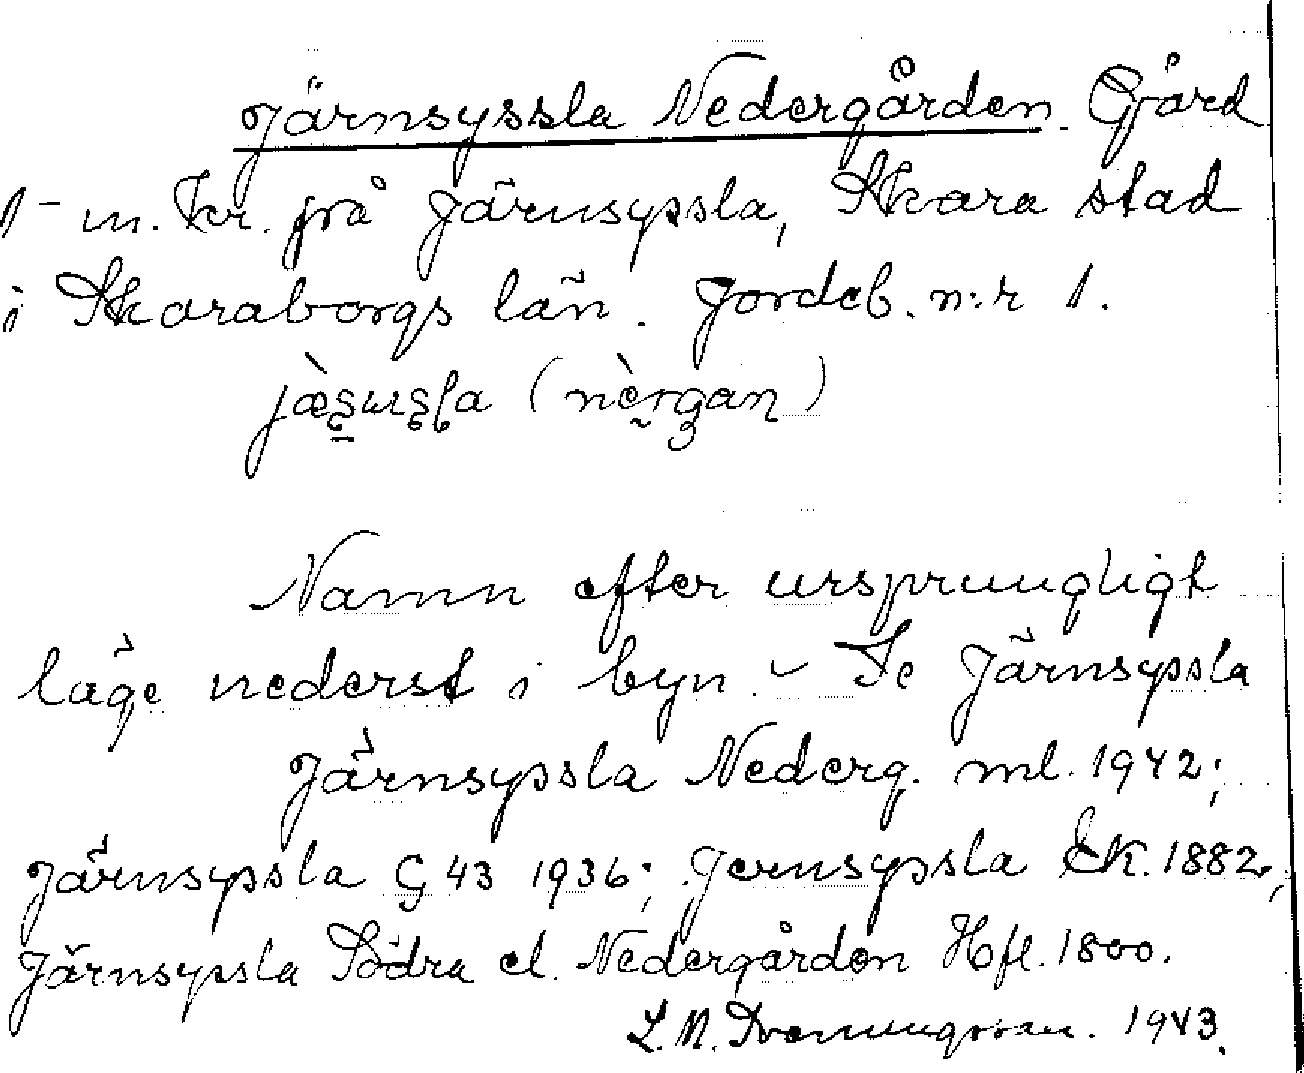 Järnsyssla Nedergården. Gård
1 m. kr. frå Järnsyssla, Skara stad
i Skaraborgs län. Jordeb. n:r 1.
Namn efter ursprungligt
läge nederst i byn. – Se Järnsyssla
Järnsyssla Nederg. ml. 1942;
Järnsyssla G 43 1936; Jernsyssla EK. 1882,
Järnsyssla Södra el. Nedergården Hfl. 1800.
L. N. 1943.